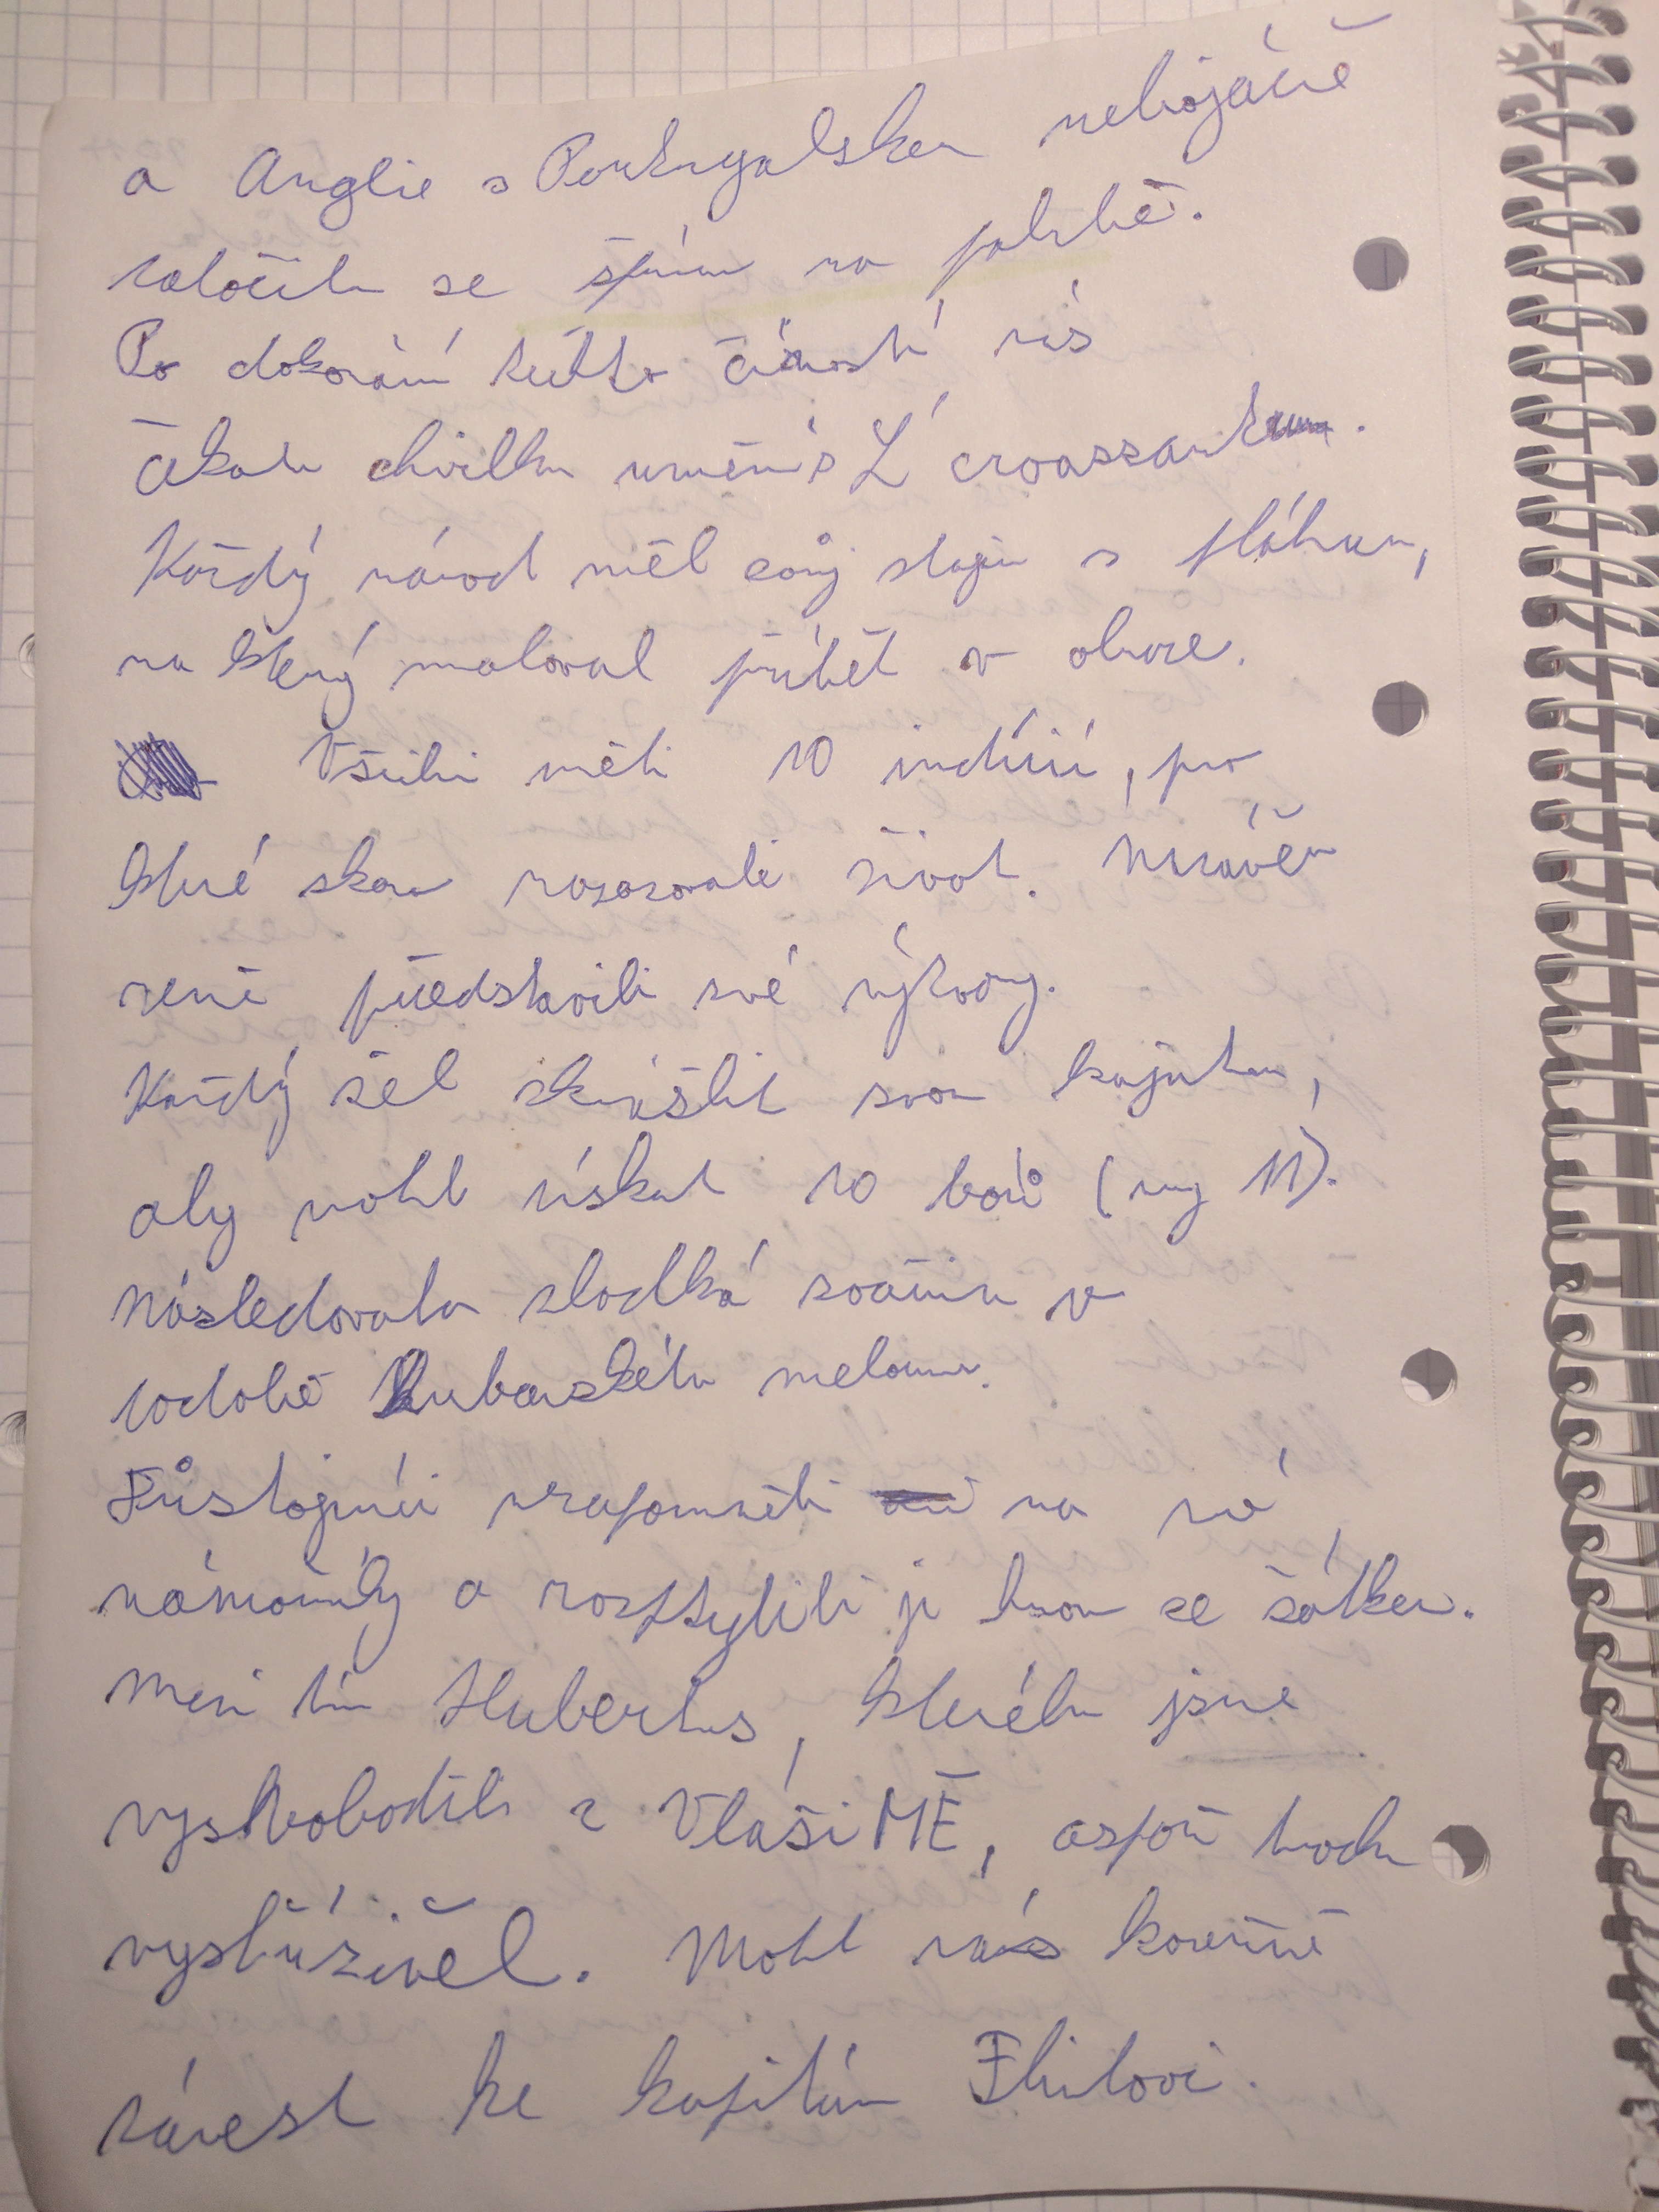 a Anglie s Portugalskem nebojácně
zatočila se špína na palubě.
Po dokonání této činnosti nás
čekala chvilka umění s L' croassant.
Každý národ měl svůj stojan s plátnem,
na který maloval příběh v obraze.
Všichni měli 10 indicií, pro
které skoro nasazovali život. Nakonec
předstkvili své výtvory.
Každý šel zkrášlit svou kajutu,
aby mohl získat 10 bodů (11).
Následovala sladká svačina v
podobě kubánského melounu.
Důstojníci nezapomněli na své
námořníky a rozptýlili je hrou se šátkem.
Mezi tím Hubertus, kterého jsme
vysvobodili z VlašiMĚ, aspoň trochu
vystřízlivěl. Mohl nás konečně
zavést ke kapitánu Flintovi.